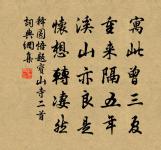 寓此曾三夏
重來隔五年
溪山亦良是
懷想轉淒然
釋園悟題寶山寺二首
詞典網集